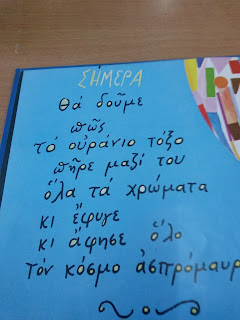 ΣΉΜΕΡΑ
θά δοῦμε
πῶς
τό οὐράνιο τόξο
πῆρε μαζί του
ὅλα τά χρώματα
κι ἔφυγε
κι ἄφησε ὅλο
τόν κόσμο ἀσπρόμαυρ